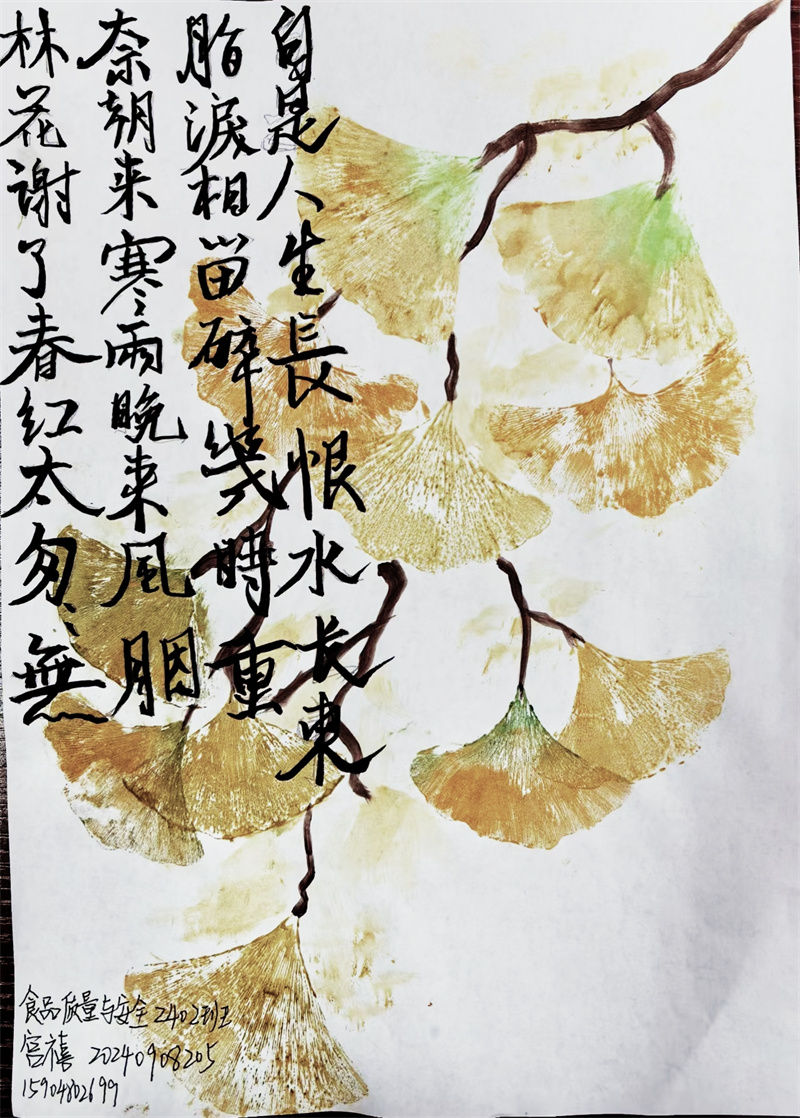 林花谢了春红太匆〻無
奈朝来寒雨晚来風胭
脂淚相留碎幾時重
自是人生長恨水长東
食品质量与安全2402班
宫禧 20240908205
15904802699